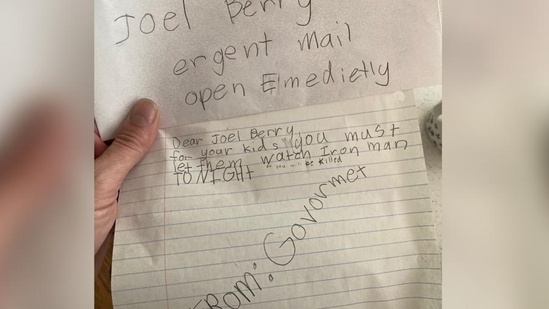 Joel Berry
ergent mail
open Elmedietly
Dear Joel Berry
for your kids you must
let them watch Iron man
TO NIGHT or you will be killed
FROM: Govormet